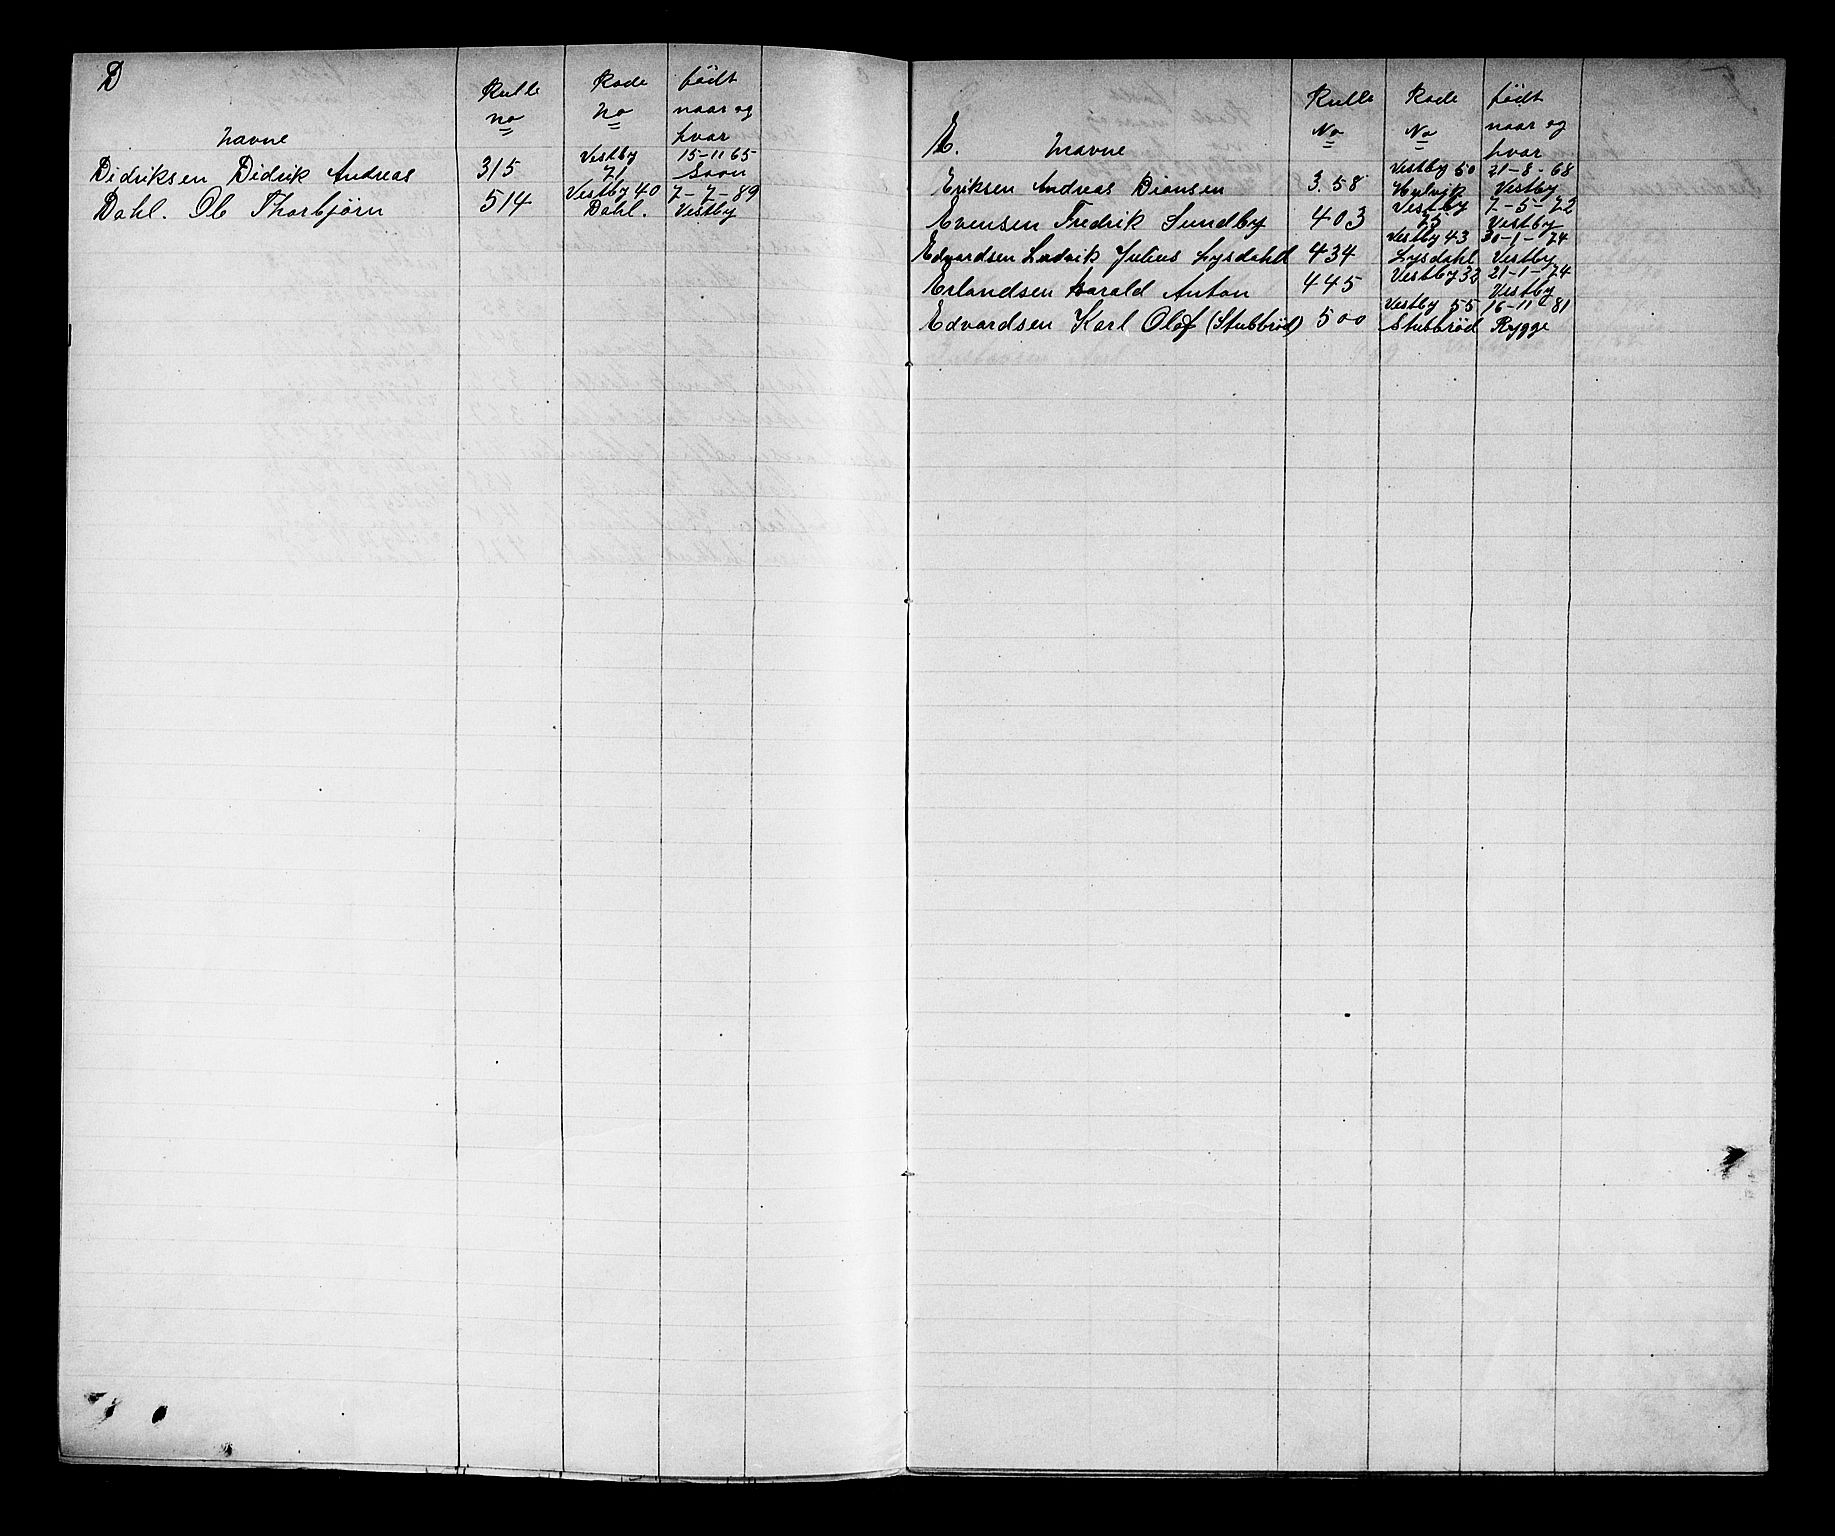 D
Navne Rulle No Rode No født naar og hvor
Didriksen Didrik Andreas 315 Vestby 71 15-11 65 Soon
Dahl. Ole Thorbjørn 514 Vestby 40 Dahl. 7-7-89 Vestby
E. Navne Rulle No Rode No født naar og hvor
Eriksen Andreas 3.58 Vestby 50 Hulvik 21-8-68 Vestby
Evensen Fredrik Sundby 403 Vestby 75 7-5-72 Vestby
Edvardsen Ludvik Julius Lysdahl 434 Vestby 43 Lysdahl 30-1-74 Vestby
Erlandsen Harald Anton 445 Vestby 32 21-1-74 Vestby
Edvardsen Karl Olaf (Stubbrød) 500 Vestby 55 Stubbrød 16-11-81 Rygge